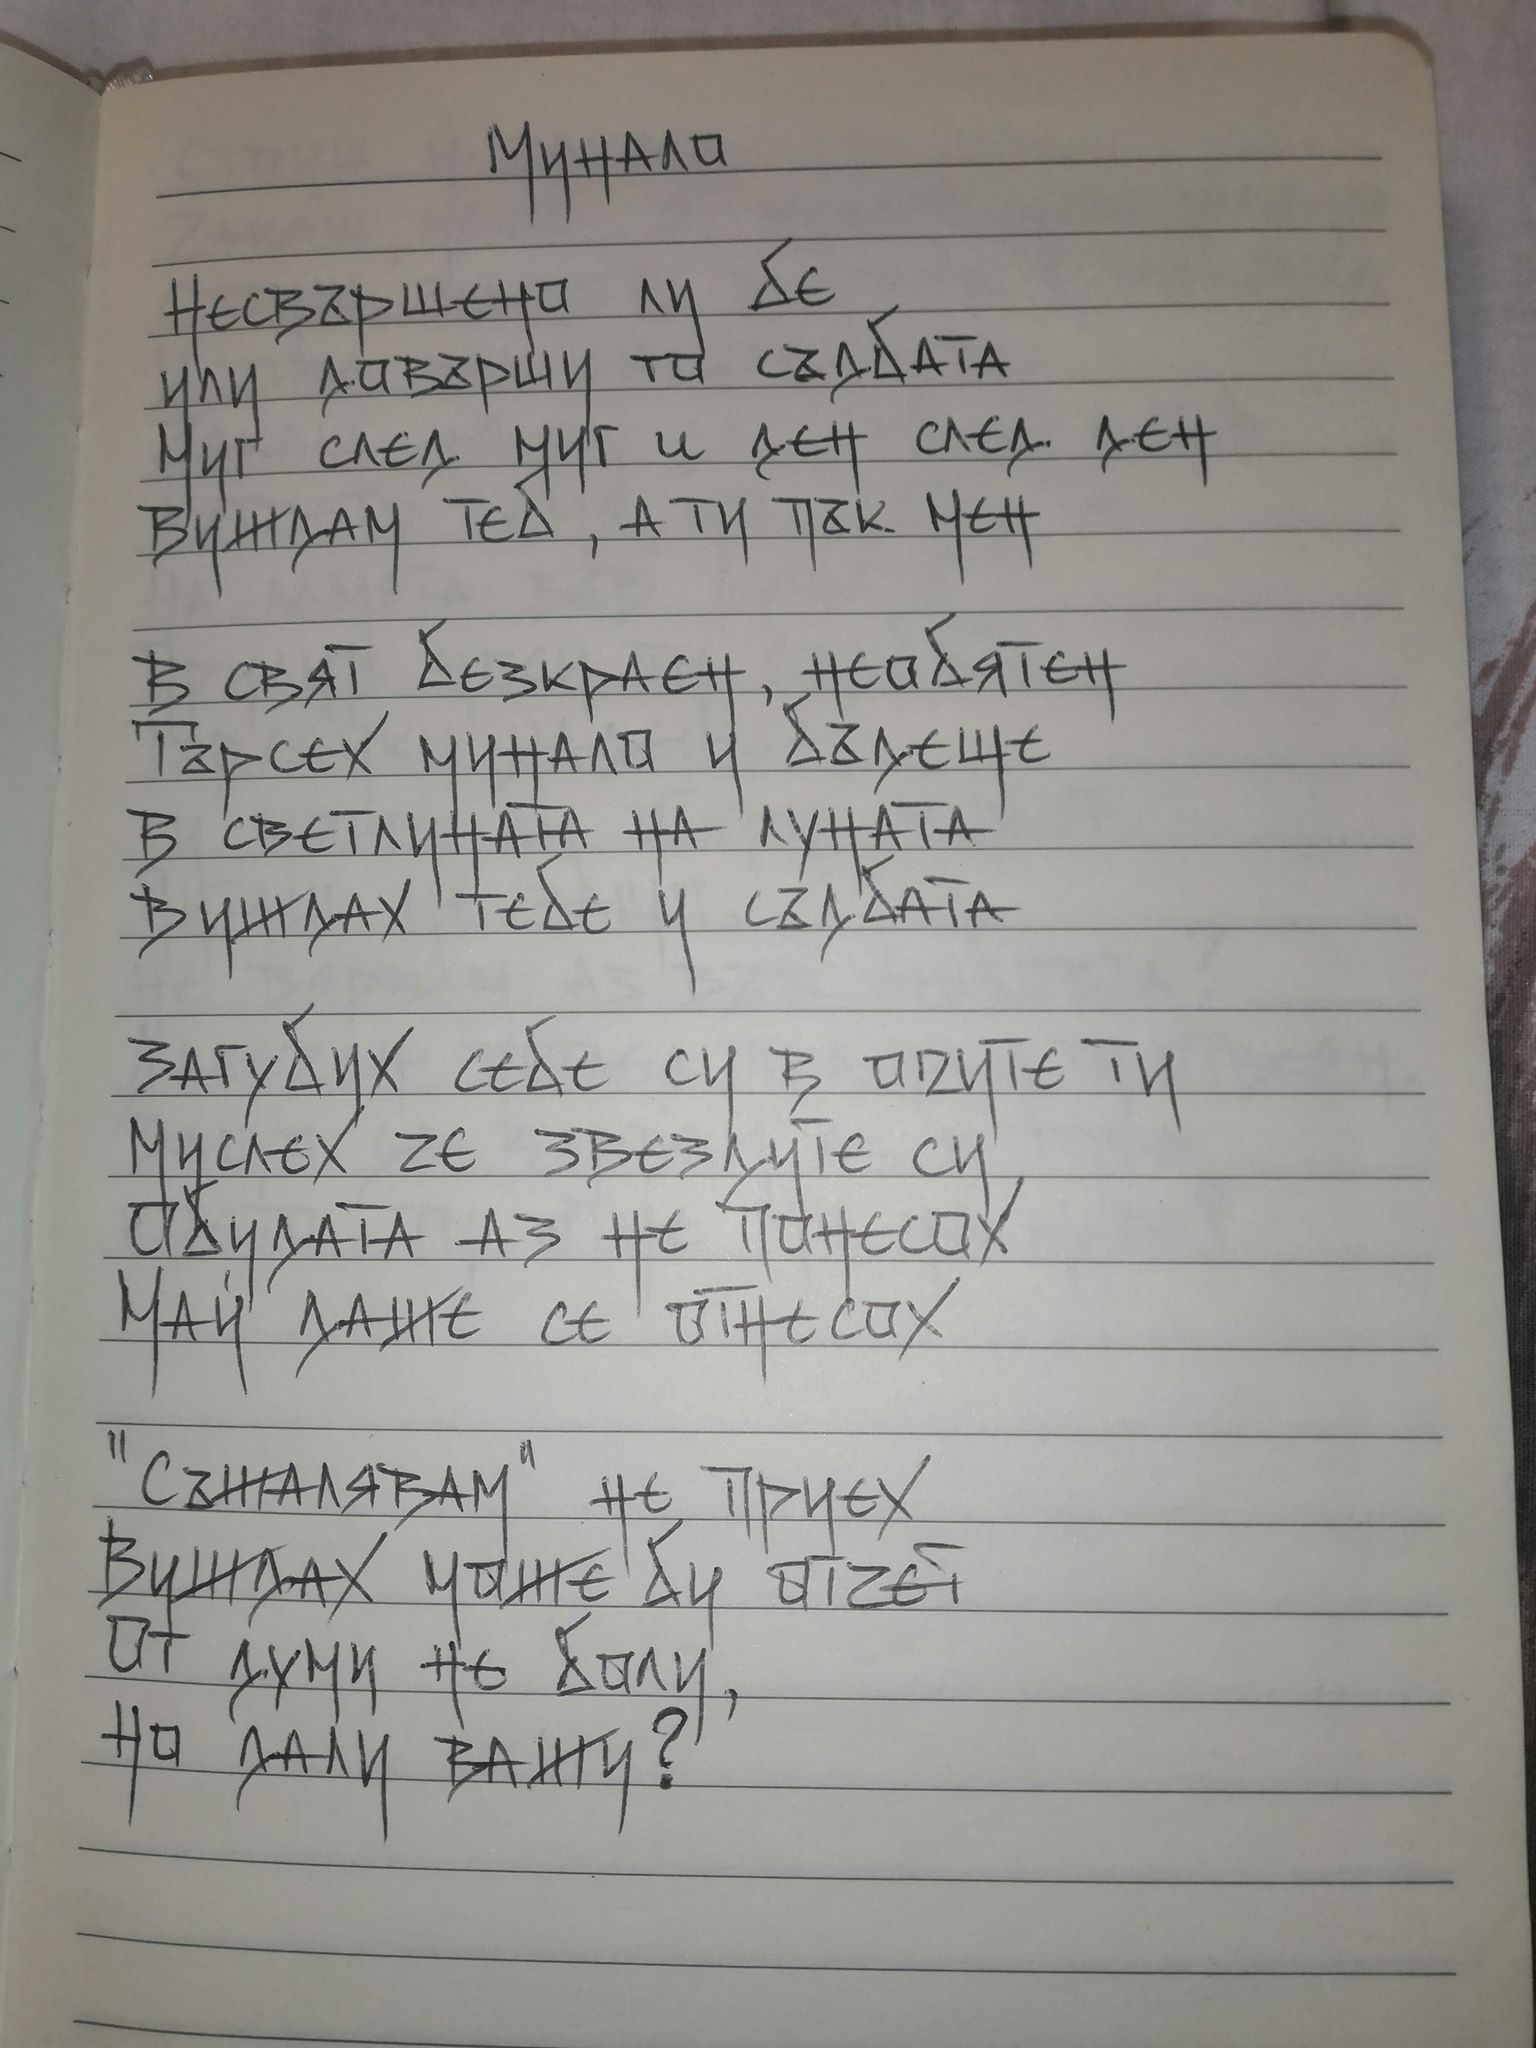 Минало
Несвършено ли бе
или довърши го съдбата
Миг след миг и ден след ден
Виждам теб, а ти пак мен
В свят безкраен, необятен
Търсех минало и бъдеще
В светлината на луната
Виждах тебе и съдбата
Загубих себе си в опите ти
Мислех че звездите си
Обидата аз не понесох
Май даже се отнесох
"Съжалявам" не приех
Виждах може би отчет
От думи не боли,
Но дали важи?